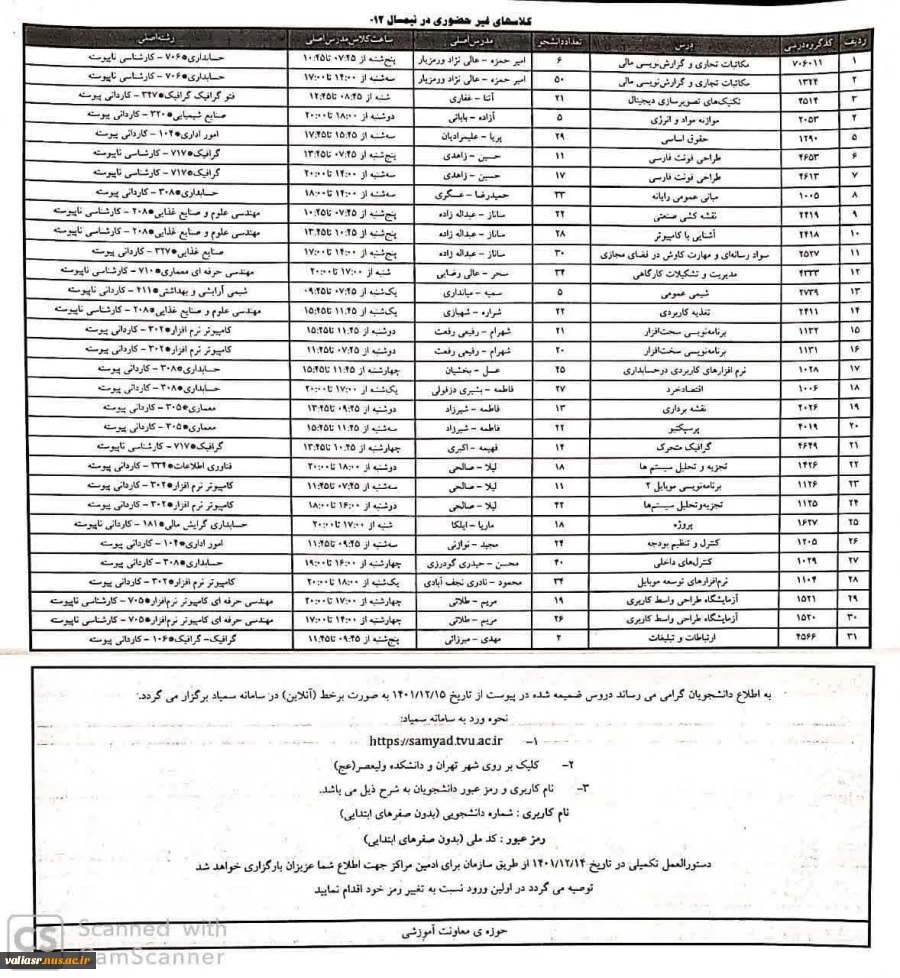 کلاسهای غیر حضوری در نیمسال ۰۱۲
ردیف کدگروه‌درسی درس تعداددانشجو مدرس‌اصلی ساعت‌کلاس‌مدرس‌اصلی رشته‌اصلی
۱ ۷۰۶۰۱۱ مکاتبات تجاری و گزارش‌نویسی مالی ۶ امیر حمزه - عالی نژاد ورمزیار پنج‌شنبه از ۰۷:۴۵ تا ۱۰:۴۵ حسابداری*۷۰۶ - کارشناسی ناپیوسته
۲ ۱۳۲۴ مکاتبات تجاری و گزارش‌نویسی مالی ۵۰ امیر حمزه - عالی نژاد ورمزیار سه‌شنبه از ۱۴:۰۰ تا ۱۷:۰۰ حسابداری*۷۰۶ - کارشناسی ناپیوسته
۳ ۴۵۱۴ تکنیک‌های تصویرسازی دیجیتال ۲۱ آتنا - غفاری شنبه از ۰۸:۴۵ تا ۱۲:۴۵ فتو گرافیک گرافیک*۳۴۷ - کاردانی پیوسته
۴ ۲۰۵۳ موازنه مواد و انرژی ۵ آزاده - بابائی دوشنبه از ۱۸:۰۰ تا ۲۰:۰۰ صنایع شیمیایی*۳۲۰ - کاردانی پیوسته
۵ ۱۲۹۰ حقوق اساسی ۲۹ پریا - علیمرادیان سه‌شنبه از ۱۵:۴۵ تا ۱۷:۴۵ امور اداری*۱۰۴ - کاردانی پیوسته
۶ ۴۶۵۳ طراحی فونت فارسی ۱۱ حسین - زاهدی پنج‌شنبه از ۰۷:۴۵ تا ۱۳:۴۵ گرافیک*۷۱۷ - کارشناسی ناپیوسته
۷ ۴۶۱۳ طراحی فونت فارسی ۱۷ حسین - زاهدی سه‌شنبه از ۱۴:۰۰ تا ۲۰:۰۰ گرافیک*۷۱۷ - کارشناسی ناپیوسته
۸ ۱۰۰۵ مبانی عمومی رایانه ۳۳ حمیدرضا - عسگری سه‌شنبه از ۱۴:۰۰ تا ۱۸:۰۰ حسابداری*۳۰۸ - کاردانی پیوسته
۹ ۲۴۱۹ نقشه کشی صنعتی ۲۲ ساناز - عبداله زاده پنج‌شنبه از ۰۷:۴۵ تا ۱۰:۴۵ مهندسی علوم و صنایع غذایی*۲۰۸ - کارشناسی ناپیوسته
۱۰ ۲۴۱۸ آشنایی با کامپیوتر ۲۸ ساناز - عبداله زاده پنج‌شنبه از ۱۰:۴۵ تا ۱۳:۴۵ مهندسی علوم و صنایع غذایی*۲۰۸ - کارشناسی ناپیوسته
۱۱ ۲۵۲۷ سواد رسانه‌ای و مهارت کاوش در فضای مجازی ۳۰ ساناز - عبداله زاده پنج‌شنبه از ۱۴:۰۰ تا ۱۷:۰۰ صنایع غذایی*۳۲۷ - کاردانی پیوسته
۱۲ ۴۳۳۳ مدیریت و تشکیلات کارگاهی ۳۴ سحر - عالی رضایی شنبه از ۱۷:۰۰ تا ۲۰:۰۰ مهندسی حرفه ای معماری*۷۱۰ - کارشناسی ناپیوسته
۱۳ ۲۷۳۹ شیمی عمومی ۵ سمیه - میانداری یک‌شنبه از ۰۷:۴۵ تا ۰۹:۴۵ شیمی آرایشی و بهداشتی*۴۱۱ - کاردانی ناپیوسته
۱۴ ۲۴۱۱ تغذیه کاربردی ۲۲ شراره - شهبازی یک‌شنبه از ۱۱:۴۵ تا ۱۵:۴۵ مهندسی علوم و صنایع غذایی*۲۰۸ - کارشناسی ناپیوسته
۱۵ ۱۱۳۲ برنامه‌نویسی سخت‌افزار ۲۱ شهرام - رفیعی رفعت دوشنبه از ۱۱:۴۵ تا ۱۵:۴۵ کامپیوتر نرم افزار*۳۰۲ - کاردانی پیوسته
۱۶ ۱۱۳۱ برنامه‌نویسی سخت‌افزار ۲۰ شهرام - رفیعی رفعت دوشنبه از ۰۷:۴۵ تا ۱۱:۴۵ کامپیوتر نرم افزار*۳۰۲ - کاردانی پیوسته
۱۷ ۱۰۲۸ نرم افزارهای کاربردی درحسابداری ۲۵ عسل - بخشیان چهارشنبه از ۱۱:۴۵ تا ۱۵:۴۵ حسابداری*۳۰۸ - کاردانی پیوسته
۱۸ ۱۰۰۶ اقتصادخرد ۲۷ فاطمه - بشیری دزفولی یک‌شنبه از ۱۷:۰۰ تا ۲۰:۰۰ حسابداری*۳۰۸ - کاردانی پیوسته
۱۹ ۴۰۲۶ نقشه برداری ۱۳ فاطمه - شیرزاد دوشنبه از ۰۹:۴۵ تا ۱۳:۴۵ معماری*۳۰۵ - کاردانی پیوسته
۲۰ ۴۰۱۹ پرسپکتیو ۲۲ فاطمه - شیرزاد سه‌شنبه از ۱۱:۴۵ تا ۱۵:۴۵ معماری*۳۰۵ - کاردانی پیوسته
۲۱ ۴۶۴۹ گرافیک متحرک ۱۴ فهیمه - اکبری چهارشنبه از ۱۰:۴۵ تا ۱۳:۴۵ گرافیک*۷۱۷ - کارشناسی ناپیوسته
۲۲ ۱۴۲۶ تجزیه و تحلیل سیستم ها ۱۸ لیلا - صالحی دوشنبه از ۱۸:۰۰ تا ۲۰:۰۰ فناوری اطلاعات*۳۳۴ - کاردانی پیوسته
۲۳ ۱۱۲۶ برنامه‌نویسی موبایل ۲ ۱۱ لیلا - صالحی سه‌شنبه از ۰۷:۴۵ تا ۱۱:۴۵ کامپیوتر نرم افزار*۳۰۲ - کاردانی پیوسته
۲۴ ۱۱۲۵ تجزیه‌وتحلیل سیستم‌ها ۴۲ لیلا - صالحی دوشنبه از ۱۶:۰۰ تا ۱۸:۰۰ کامپیوتر نرم افزار*۳۰۲ - کاردانی پیوسته
۲۵ ۱۶۲۷ پروژه ۱۸ ماریا - ایلکا شنبه از ۱۷:۰۰ تا ۲۰:۰۰ حسابداری گرایش مالی*۱۸۱ - کاردانی ناپیوسته
۲۶ ۱۲۰۵ کنترل و تنظیم بودجه ۲۴ مجید - نوازنی سه‌شنبه از ۰۹:۴۵ تا ۱۱:۴۵ امور اداری*۱۰۴ - کاردانی پیوسته
۲۷ ۱۰۲۹ کنترل‌های داخلی ۴۰ محسن - حیدری گودرزی چهارشنبه از ۱۶:۰۰ تا ۱۹:۰۰ حسابداری*۳۰۸ - کاردانی پیوسته
۲۸ ۱۱۰۴ نرم‌افزارهای توسعه موبایل ۳۴ محمود - نادری نجف آبادی یک‌شنبه از ۱۸:۰۰ تا ۲۰:۰۰ کامپیوتر نرم افزار*۳۰۲ - کاردانی پیوسته
۲۹ ۱۵۲۱ آزمایشگاه طراحی واسط کاربری ۱۹ مریم - طلائی چهارشنبه از ۱۷:۰۰ تا ۲۰:۰۰ مهندسی حرفه ای کامپیوتر نرم‌افزار*۷۰۵ - کارشناسی ناپیوسته
۳۰ ۱۵۲۰ آزمایشگاه طراحی واسط کاربری ۲۶ مریم - طلائی چهارشنبه از ۱۴:۰۰ تا ۱۷:۰۰ مهندسی حرفه ای کامپیوتر نرم‌افزار*۷۰۵ - کارشناسی ناپیوسته
۳۱ ۴۵۶۶ ارتباطات و تبلیغات ۲ مهدی - میرزائی پنج‌شنبه از ۰۹:۴۵ تا ۱۱:۴۵ گرافیک- گرافیک*۱۰۶ - کاردانی پیوسته
به اطلاع دانشجویان گرامی می رساند دروس ضمیمه شده در پیوست از تاریخ ۱۴۰۱/۱۲/۱۵ به صورت برخط (آنلاین) در سامانه سمیاد برگزار می گردد.
نحوه ورد به سامانه سمیاد:
۱- https://samyad.tvu.ac.ir
۲- کلیک بر روی شهر تهران و دانشکده ولیعصر(عج)
۳- نام کاربری و رمز عبور دانشجویان به شرح ذیل می باشد.
نام کاربری : شماره دانشجویی (بدون صفرهای ابتدایی)
رمز عبور : کد ملی (بدون صفرهای ابتدایی)
دستورالعمل تکمیلی در تاریخ ۱۴۰۱/۱۲/۱۴ از طریق سازمان برای ادمین مراکز جهت اطلاع شما عزیزان بارگزاری خواهد شد
توصیه می گردد در اولین ورود نسبت به تغییر رمز خود اقدام نمایید
حوزه ی معاونت آموزشی
CS Scanned with
CamScanner
valiasr.nus.ac.ir